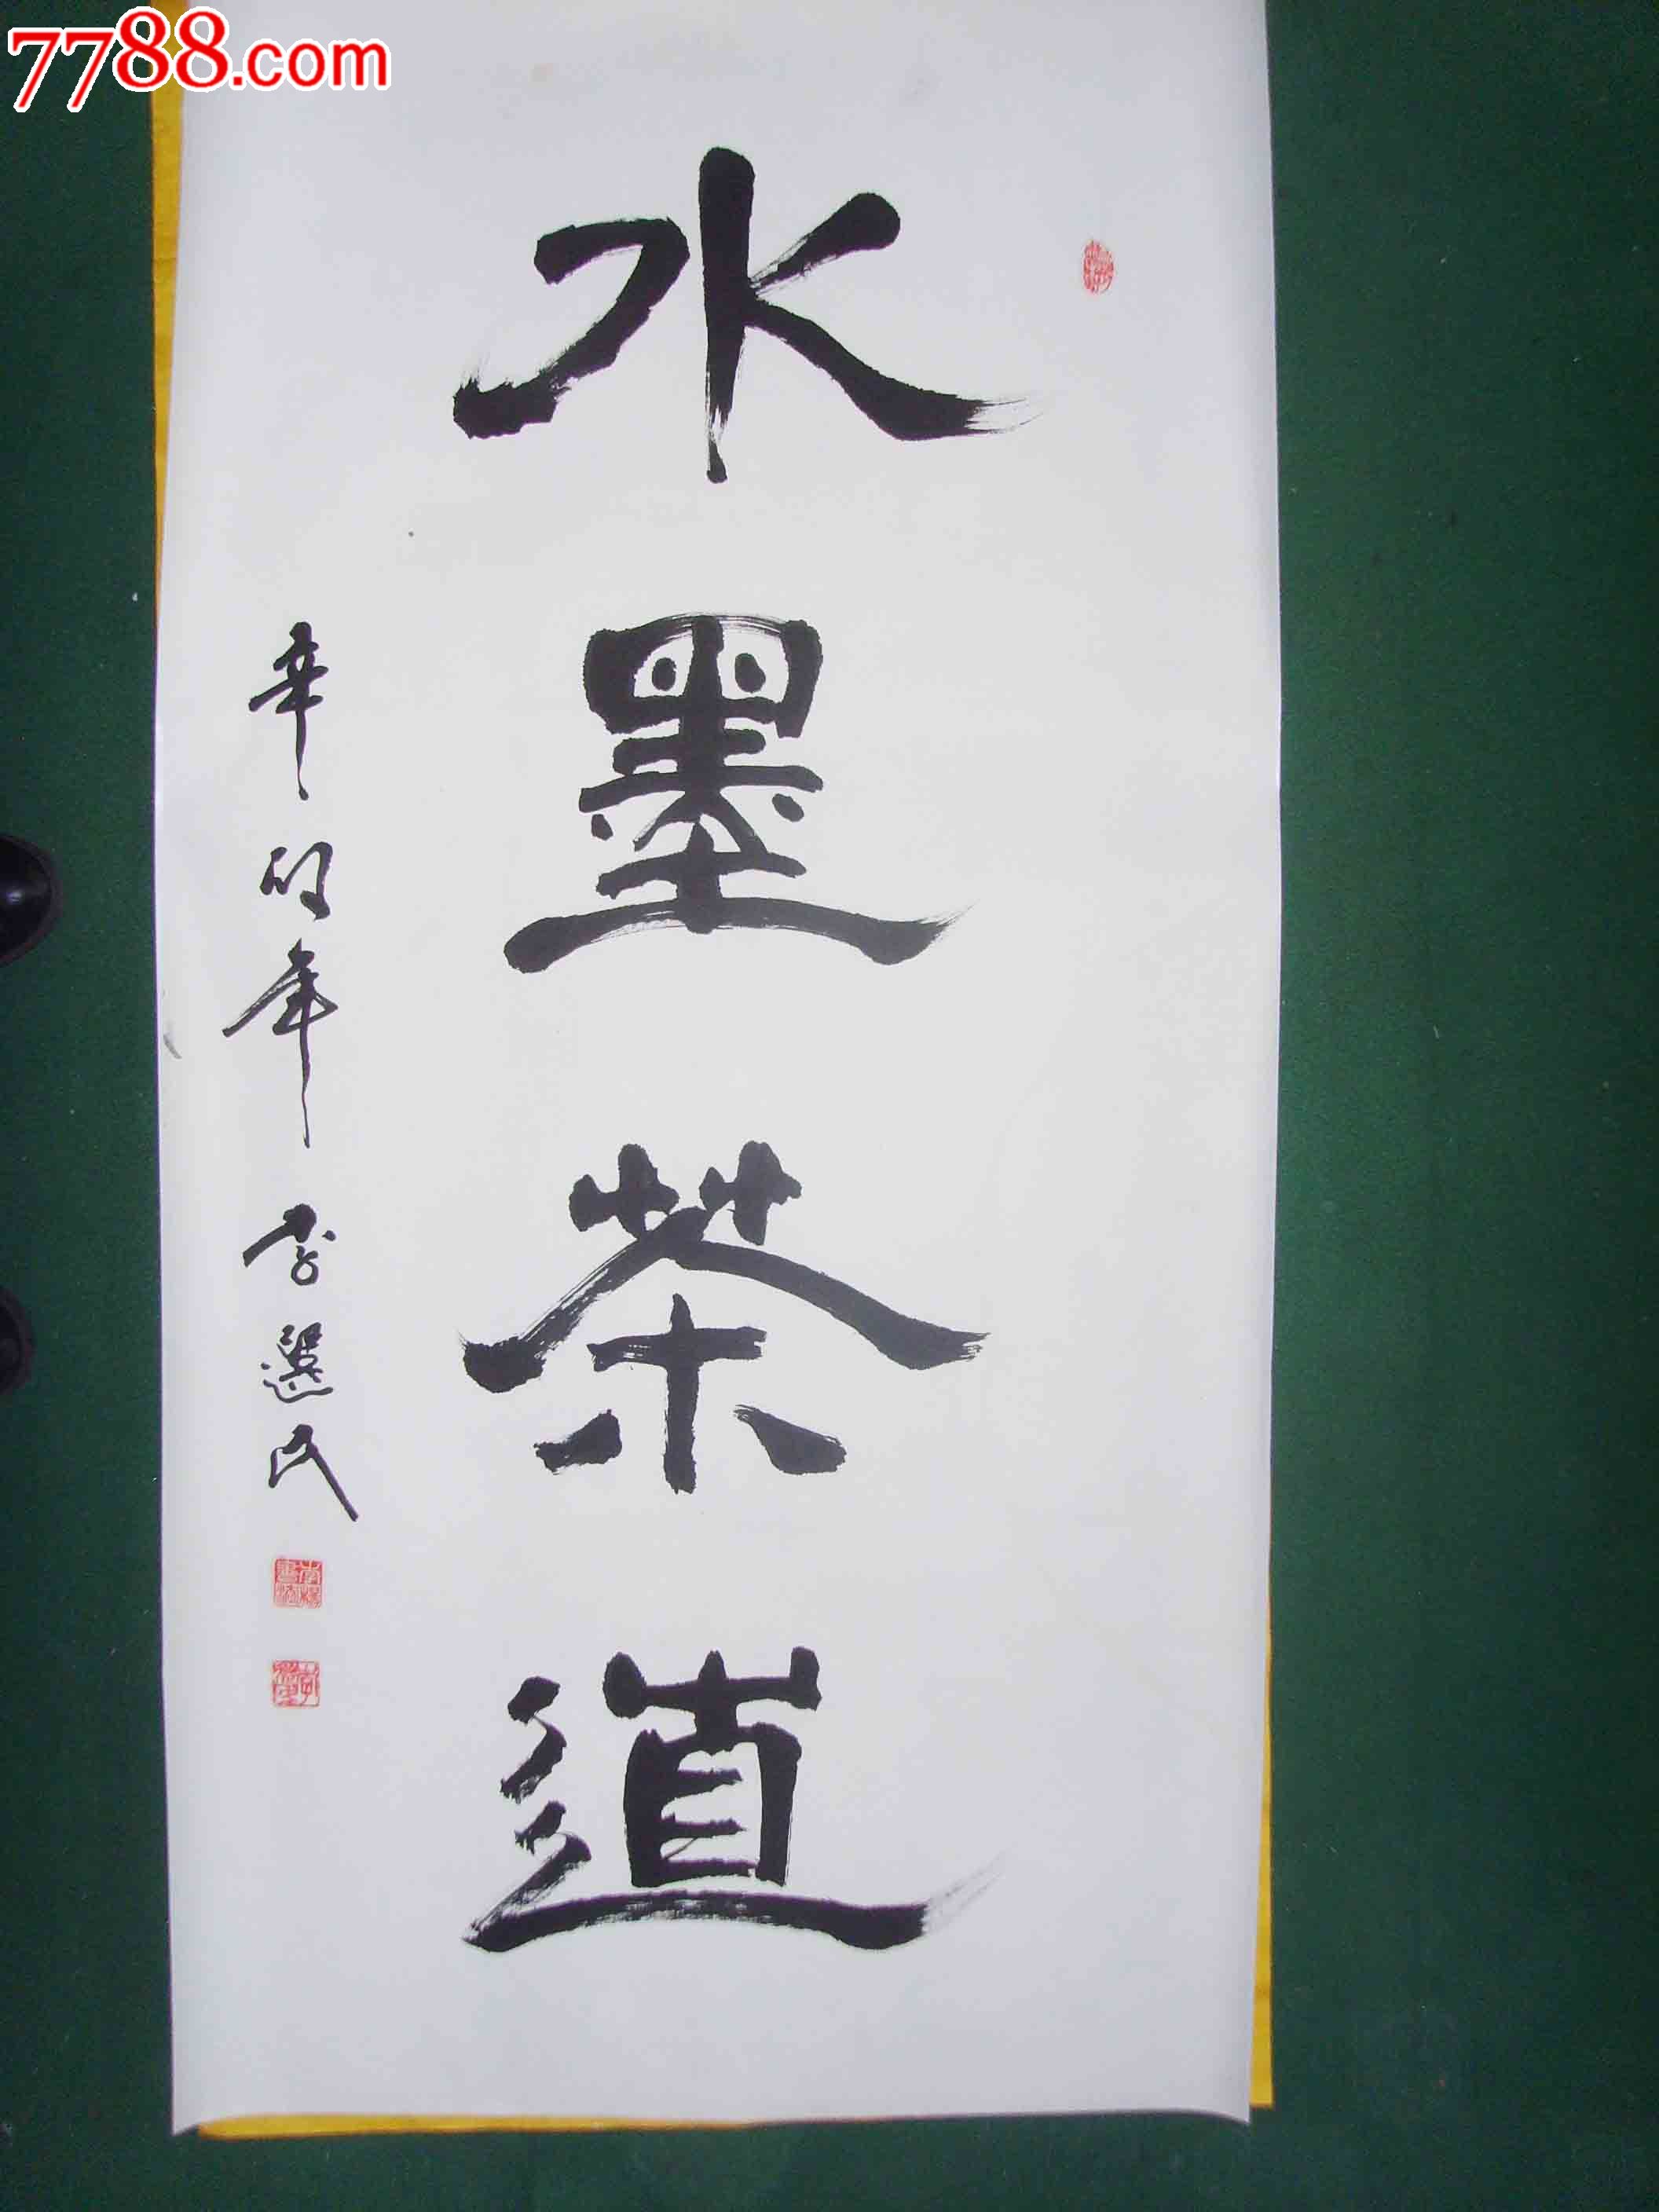 7788.com
水墨茶道
辛卯年 李選民